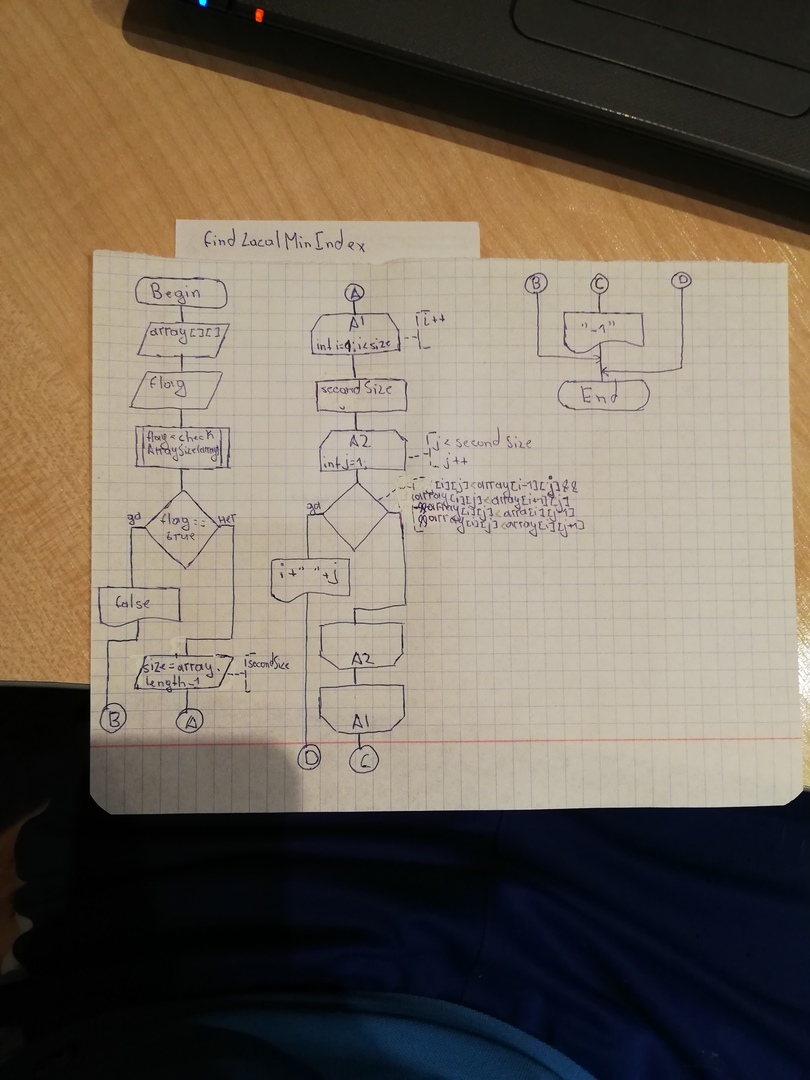 find Local Min Index
Begin
array[][]
flag
flag = check
ArraySize(array)
да
flag ==
true
нет
false
size = array.
length-1
secondSize
B
A
A
A1
int i=1; i<size
i++
secondSize
A2
int j=1;
j < second Size
j++
[i][j]<array[i-1][j]&&
array[i][j]<array[i+1][j]
&&array[i][j]<array[i][j-1]
&&array[i][j]<array[i][j+1]
да
i+" "+j
A2
A1
D
C
B
C
D
"-1"
End